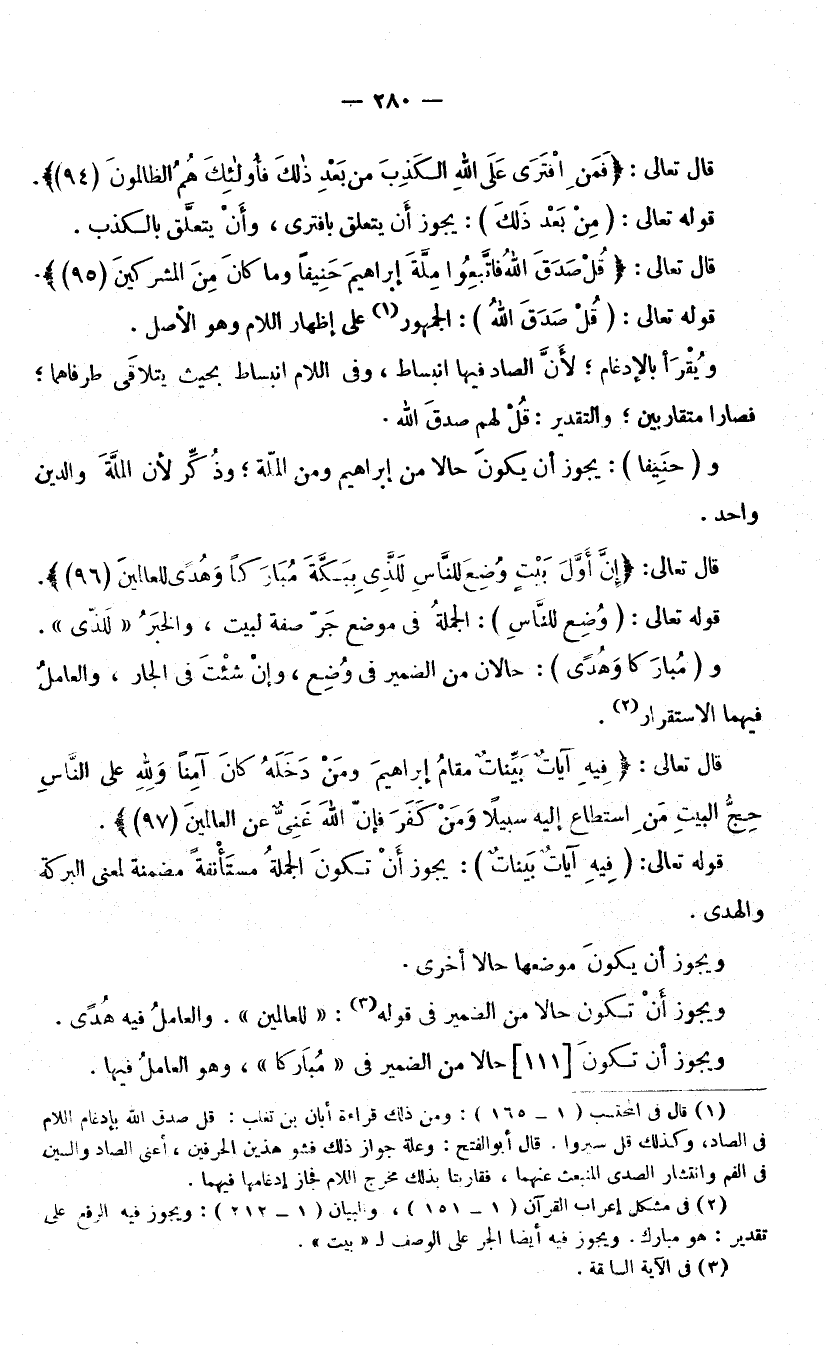 — ٢٨٠ —
قال تعالى : ﴿ فَمَنِ افْتَرَى عَلَى اللهِ الكَذِبَ من بَعْدِ ذٰلكَ فأُولٰئِكَ هُمُ الظالمونَ (٩٤)﴾.
قوله تعالى : ( مِنْ بَعْد ذَلكَ ) : يجوز أن يتعلق بافترى ، وأنْ يتعلَّق بالكذب .
قال تعالى : ﴿ قُلْ صَدَقَ اللهُ فاتَّبِعُوا مِلَّةَ إبراهيمَ حَنِيفاً وما كانَ مِنَ المشركينَ (٩٥)﴾.
قوله تعالى : ( قُلْ صَدَقَ اللهُ ) : الجمهور(١) على إظهار اللام وهو الأصل .
ويُقْرَأ بالإدغام ؛ لأنَّ الصاد فيها انبساط ، وفى اللام انبساط بحيث يتلاقَى طرفاهما ؛
فصارا متقاربين ؛ والتقدير : قُلْ لهم صدقَ الله .
و ( حنَيِفا ) : يجوز أن يكونَ حالا من إبراهيم ومن الملّة ؛ وذُكِّر لأن الملَّةَ والدين
واحد .
قال تعالى : ﴿ إنَّ أَوَّلَ بَيْتٍ وُضِعَ للنَّاسِ لَلَّذِى بِبَكَّةَ مُبَارَكاً وَهُدًى للعالمينَ (٩٦) ﴾.
قوله تعالى : ( وُضِع للنَّاسِ ) : الجملةُ فى موضع جَرّ صفة لبيت ، والخبَرُ « لَلذّى » .
و ( مُبارَكا وَهُدًى ) : حالان من الضمير فى وُضِع ، وإنْ شئْتَ فى الجار ، والعاملُ
فيهما الاستقرار(٢) .
قال تعالى : ﴿ فِيهِ آياتٌ بَيِّناتٌ مقامُ إبراهيمَ ومَنْ دَخَلَهُ كانَ آمِناً وَلِلهِ على النَّاسِ
حِجُّ البيتِ مَنِ استطاع إليه سبيلًا وَمَنْ كَفَرَ فإنّ اللهَ غَنِىٌّ عن العالمينَ (٩٧) ﴾ .
قوله تعالى : ( فِيهِ آياتٌ بَيناتٌ ) : يجوز أنْ تكونَ الجملةُ مستَأْنفةً مضمنة لمعنى البركة
والهدى .
ويجوز أن يكونَ موضعها حالا أخرى .
ويجوز أَنْ تكون حالا من الضمير فى قوله(٣) : « للعالمين » . والعاملُ فيه هُدًى .
ويجوز أن تكونَ [١١١] حالا من الضمير فى « مُبَاركا » ، وهو العاملُ فيها .
(١) قال فى المحتسب ( ١ – ١٦٥ ) : ومن ذلك قراءة أبان بن تغلب : قل صدق الله بإدغام اللام
فى الصاد، وكذلك قل سيروا . قال أبوالفتح : وعلة جواز ذلك فشو هذين الحرفين ، أعنى الصاد والسين
فى الفم وانتشار الصدى المنبعث عنهما ، فقاربتا بذلك مخرج اللام فجاز إدغامها فيهما .
(٢) فى مشكل إعراب القرآن ( ١ – ١٥١ ) ، والبيان ( ١ – ٢١٢ ) : ويجوز فيه الرفع على
تقدير : هو مبارك . ويجوز فيه أيضا الجر على الوصف لـ « بيت » .
(٣) فى الآية السابقة .